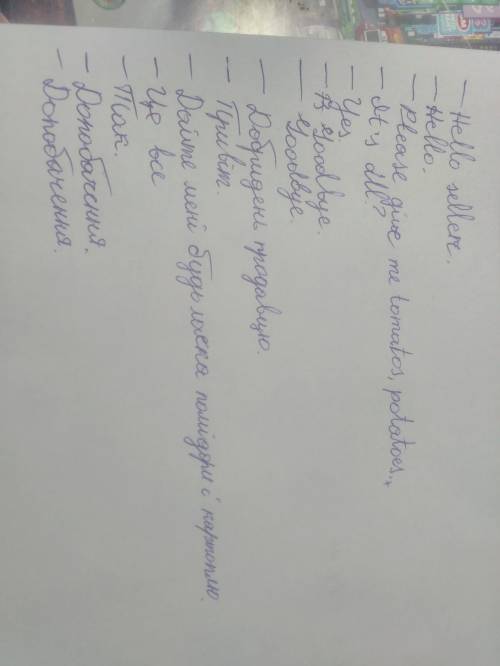 — Hello sellere.
— Hello.
— Please give me tomatos, potatoes..
— It's all?
— Yes
— Goodbye.
— Goodbye.
— Добридень продавцю.
— Привіт.
— Дайте мені будь ласка помідори і картоплю.
— Це все
— Так.
— Допобачення.
— Допобачення.